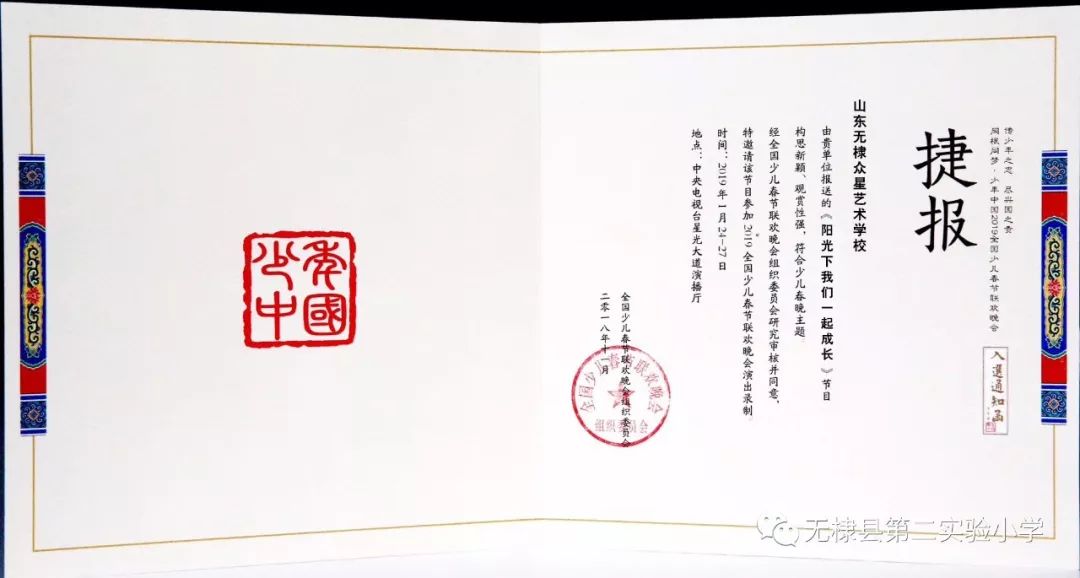 传少年之志 尽兴国之责
同根同梦·少年中国2019全国少儿春节联欢晚会
入選通知函
捷报
山东无棣众星艺术学校
由贵单位报送的《阳光下我们一起成长》节目
构思新颖、观赏性强，符合少儿春晚主题。
经全国少儿春节联欢晚会组织委员会研究审核并同意，
特邀请该节目参加2019全国少儿春节联欢晚会演出录制。
时间：2019年1月24-27日
地点：中央电视台星光大道演播厅
全国少儿春节联欢晚会组织委员会
二零一八年十一月
全国少儿春节联欢晚会
组织委员会
少年中國
无棣县第二实验小学